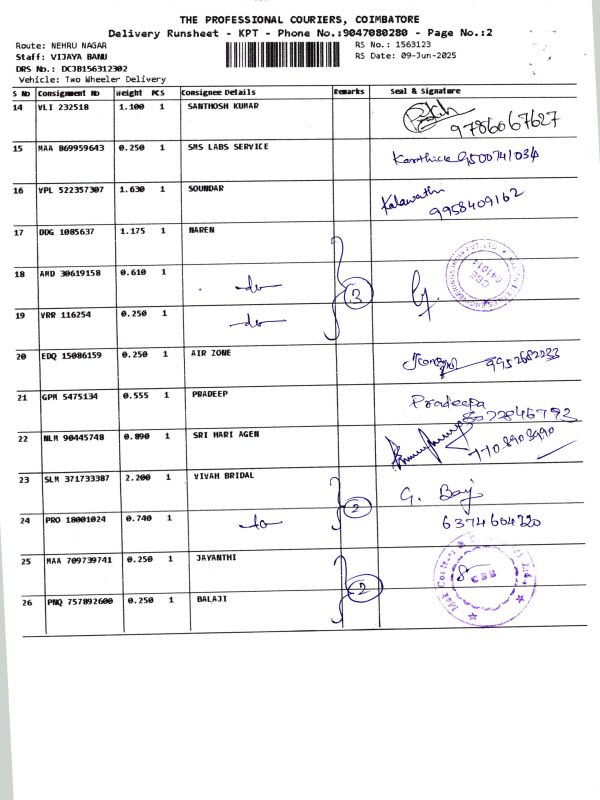 THE PROFESSIONAL COURIERS, COIMBATORE
Delivery Runsheet - KPT - Phone No.:9047080280 - Page No.:2
Route: NEHRU NAGAR RS No.: 1563123
Staff: VIJAYA BANU RS Date: 09-Jun-2025
DRS No.: DCJB156312302
Vehicle: Two Wheeler Delivery
S No Consignment No Weight PCS Consignee Details Remarks Seal & Signature
14 VLI 232518 1.100 1 SANTHOSH KUMAR 9786067627
15 MAA 869959643 0.250 1 SMS LABS SERVICE Karthick 9500741034
16 VPL 522357307 1.630 1 SOUNDAR Kalawathi 9958409162
17 DDG 1085637 1.175 1 NAREN
18 AMD 30619158 0.610 1 -do- 3
19 VRR 116254 0.250 1 -do-
20 EDQ 15086159 0.250 1 AIR ZONE 9952682233
21 GPM 5475134 0.555 1 PRADEEP Pradeepa
22 NLM 90445748 0.890 1 SRI HARI AGEN
23 SLM 371733387 2.200 1 VIVAH BRIDAL 2 G. Baj
24 PRO 18001024 0.740 1 -do- 6374604220
25 MAA 709739741 0.250 1 JAYANTHI 2
26 PNQ 757892600 0.250 1 BALAJI